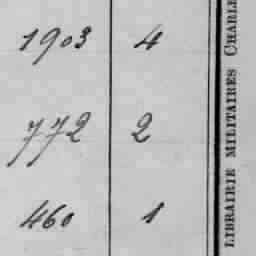 1903 4
772 2
460 1
LIBRAIRIE MILITAIRES CHARLE